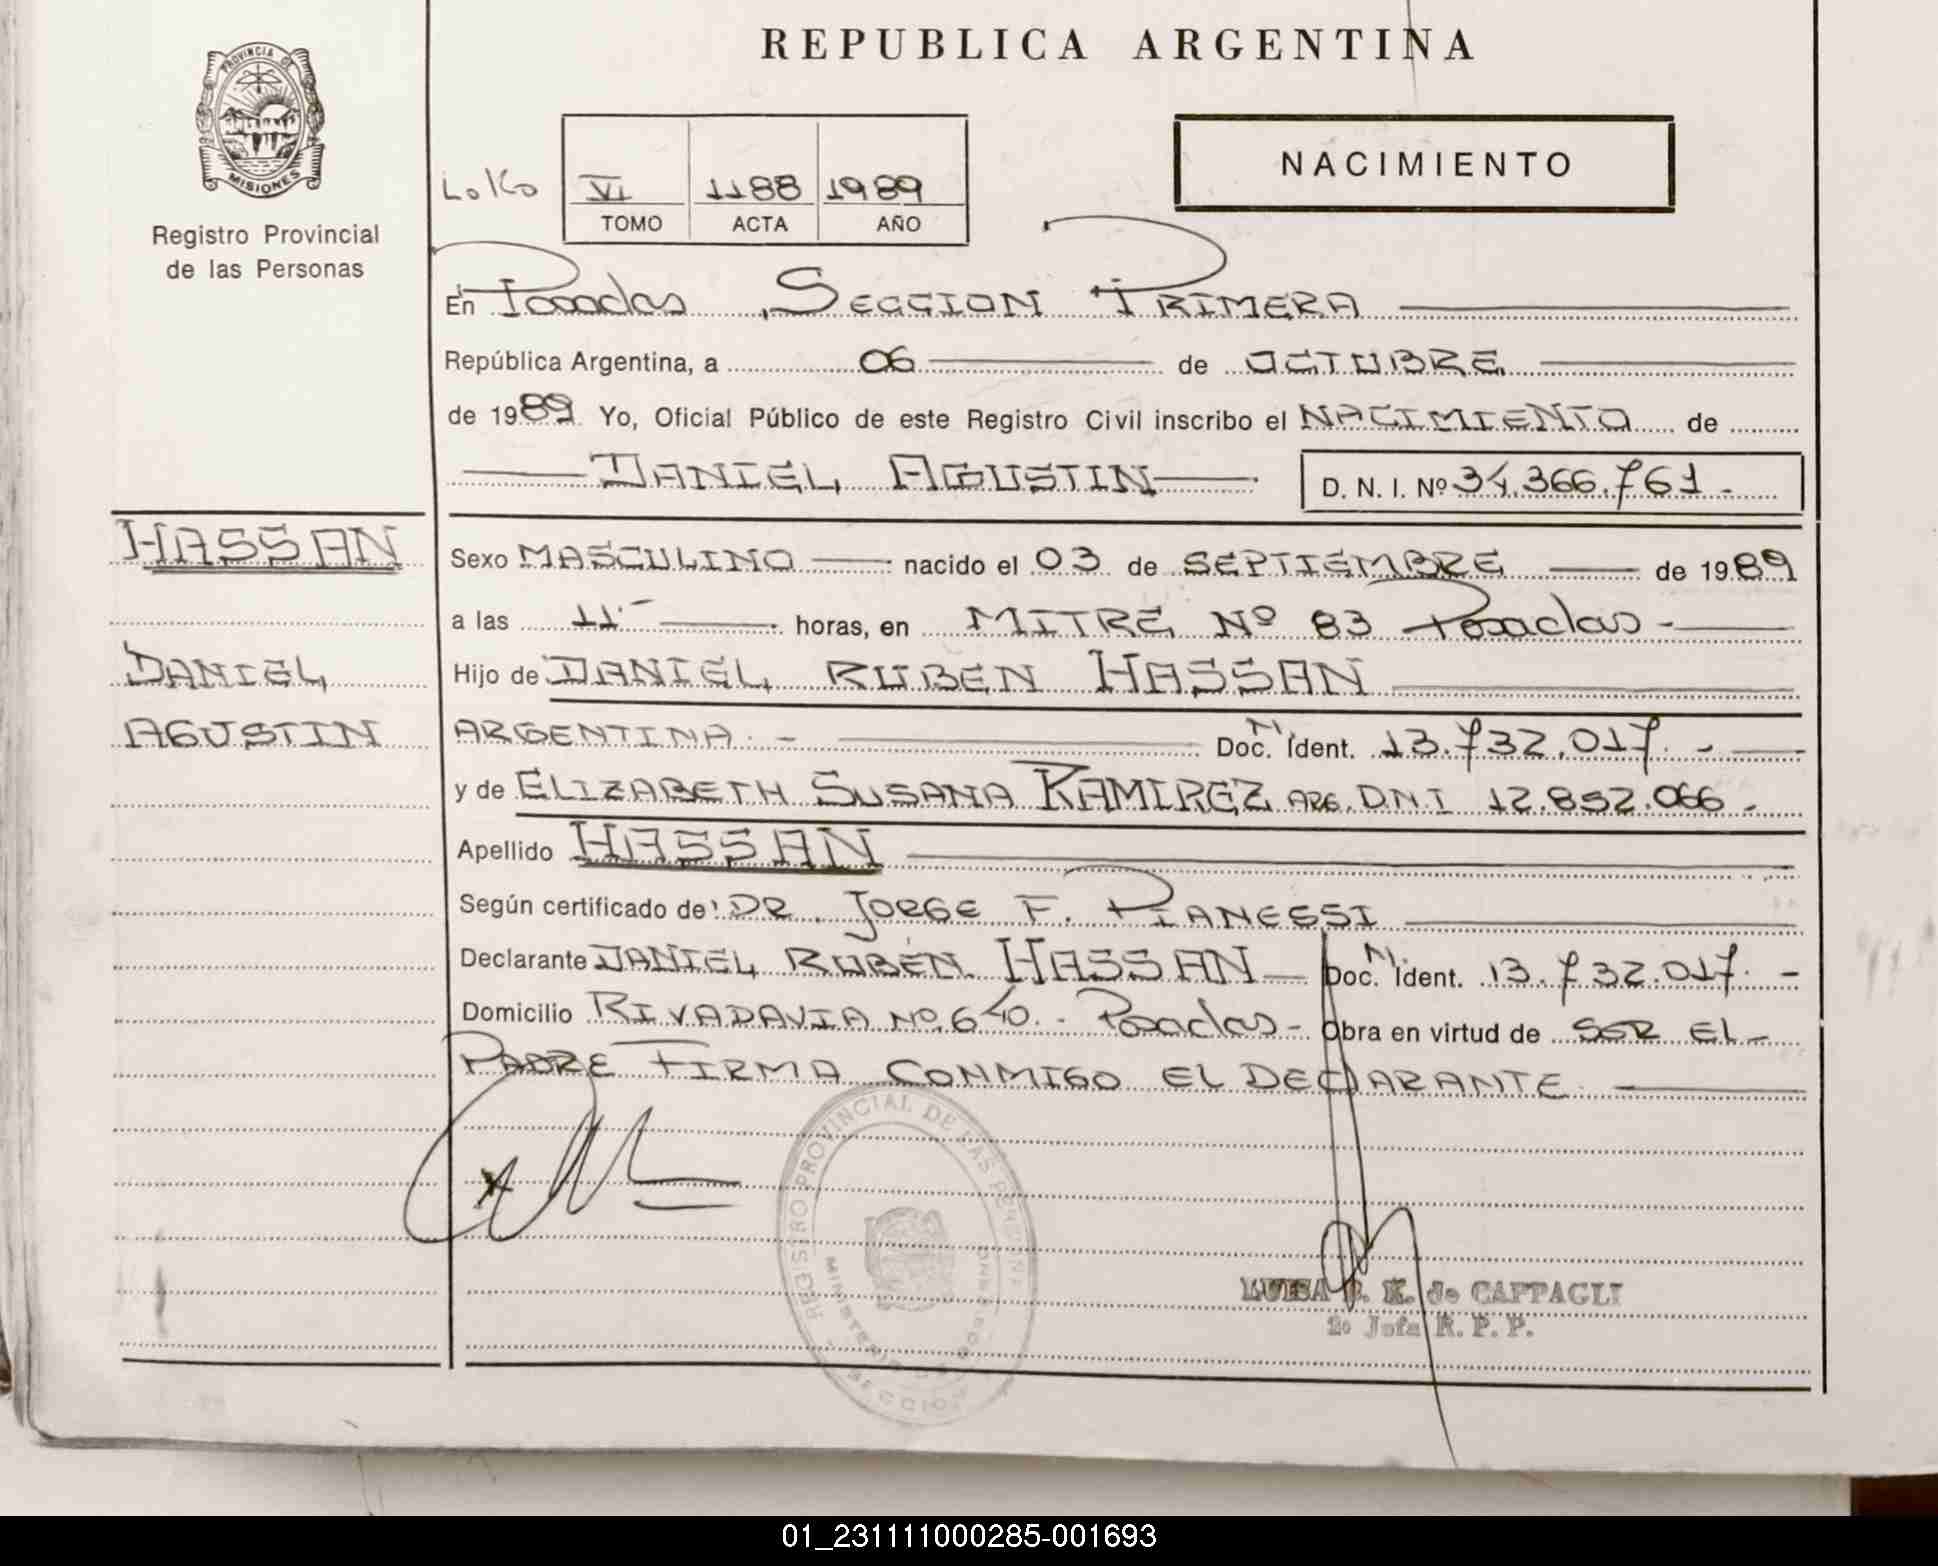 REPUBLICA ARGENTINA
PROVINCIA DE
MISIONES
Registro Provincial
de las Personas
VI 1188 1989
TOMO ACTA AÑO
NACIMIENTO
En Posadas, SECCION PRIMERA
República Argentina, a 06 de OCTUBRE
de 1989 Yo, Oficial Público de este Registro Civil inscribo el NACIMIENTO de
DANIEL AGUSTIN D. N. I. Nº 34.366.761.-
HASSAN
DANIEL
AGUSTIN
Sexo MASCULINO nacido el 03 de SEPTIEMBRE de 1989
a las 11- horas, en MITRE Nº 83 Posadas-
Hijo de DANIEL RUBEN HASSAN
ARGENTINA.- Doc. N. Ident. 13.732.017.-
y de ELIZABETH SUSANA RAMIREZ ARG. D.N.I 12.852.066.-
Apellido HASSAN
Según certificado de DR. JORGE F. PIANESSI
Declarante DANIEL RUBÉN HASSAN Doc. N. Ident. 13.732.017.-
Domicilio RIVADAVIA Nº 640.- Posadas- Obra en virtud de SER EL-
PADRE FIRMA CONMIGO EL DECLARANTE.
REGISTRO PROVINCIAL DE LAS PERSONAS
LUISA E. K. de CAPPAGLI
2º Jefa R. P. P.
01_231111000285-001693